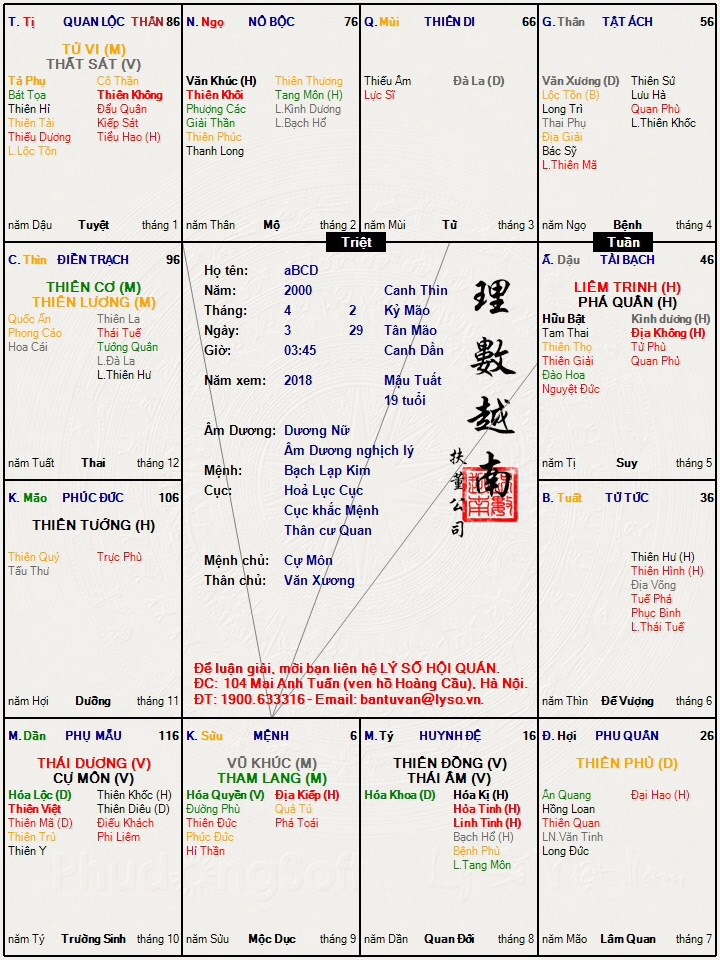 T. Tị QUAN LỘC THÂN 86
TỬ VI (M)
THẤT SÁT (V)
Tả Phụ Cô Thần
Bát Tọa Thiên Không
Thiên Hỉ Đẩu Quân
Thiên Tài Kiếp Sát
Thiếu Dương Tiểu Hao (H)
L.Lộc Tồn
năm Dậu Tuyệt tháng 1
N. Ngọ NÔ BỘC 76
Văn Khúc (H) Thiên Thương
Thiên Khôi Tang Môn (H)
Phượng Các L.Kình Dương
Giải Thần L.Bạch Hổ
Thiên Phúc
Thanh Long
năm Thân Mộ tháng 2
Q. Mùi THIÊN DI 66
Thiếu Âm Đà La (D)
Lực Sĩ
năm Mùi Tử tháng 3
G. Thân TẬT ÁCH 56
Văn Xương (D) Thiên Sứ
Lộc Tồn (B) Lưu Hà
Long Trì Quan Phù
Thai Phụ L.Thiên Khốc
Địa Giải
Bác Sỹ
L.Thiên Mã
năm Ngọ Bệnh tháng 4
Triệt
Tuần
C. Thìn ĐIỀN TRẠCH 96
THIÊN CƠ (M)
THIÊN LƯƠNG (M)
Quốc Ấn Thiên La
Phong Cáo Thái Tuế
Hoa Cái Tướng Quân
L.Đà La
L.Thiên Hư
năm Tuất Thai tháng 12
Họ tên: aBCD
Năm: 2000 Canh Thìn
Tháng: 4 2 Kỷ Mão
Ngày: 3 29 Tân Mão
Giờ: 03:45 Canh Dần
Năm xem: 2018 Mậu Tuất
19 tuổi
Âm Dương: Dương Nữ
Âm Dương nghịch lý
Mệnh: Bạch Lạp Kim
Cục: Hoả Lục Cục
Cục khắc Mệnh
Thân cư Quan
Mệnh chủ: Cự Môn
Thân chủ: Văn Xương
理數越南
扶董公司
Để luận giải, mời bạn liên hệ LÝ SỐ HỘI QUÁN.
ĐC: 104 Mai Anh Tuấn (ven hồ Hoàng Cầu), Hà Nội.
ĐT: 1900.633316 - Email: bantuvan@lyso.vn.
Ấ. Dậu TÀI BẠCH 46
LIÊM TRINH (H)
PHÁ QUÂN (H)
Hữu Bật Kình dương (H)
Tam Thai Địa Không (H)
Thiên Thọ Tử Phù
Thiên Giải Quan Phủ
Đào Hoa
Nguyệt Đức
năm Tị Suy tháng 5
K. Mão PHÚC ĐỨC 106
THIÊN TƯỚNG (H)
Thiên Quý Trực Phù
Tấu Thư
năm Hợi Dưỡng tháng 11
B. Tuất TỬ TỨC 36
Thiên Hư (H)
Thiên Hình (H)
Địa Võng
Tuế Phá
Phục Binh
L.Thái Tuế
năm Thìn Đế Vượng tháng 6
M. Dần PHỤ MẪU 116
THÁI DƯƠNG (V)
CỰ MÔN (V)
Hóa Lộc (D) Thiên Khốc (H)
Thiên Việt Thiên Diêu (D)
Thiên Mã (D) Điếu Khách
Thiên Trù Phi Liêm
Thiên Y
năm Tý Trường Sinh tháng 10
K. Sửu MỆNH 6
VŨ KHÚC (M)
THAM LANG (M)
Hóa Quyền (V) Địa Kiếp (H)
Đường Phù Quả Tú
Thiên Đức Phá Toái
Phúc Đức
Hỉ Thần
năm Sửu Mộc Dục tháng 9
M. Tý HUYNH ĐỆ 16
THIÊN ĐỒNG (V)
THÁI ÂM (V)
Hóa Khoa (D) Hóa Kị (H)
Hỏa Tinh (H)
Linh Tinh (H)
Bạch Hổ (H)
Bệnh Phù
L.Tang Môn
năm Dần Quan Đới tháng 8
Đ. Hợi PHU QUÂN 26
THIÊN PHỦ (D)
Ân Quang Đại Hao (H)
Hồng Loan
Thiên Quan
LN.Văn Tinh
Long Đức
năm Mão Lâm Quan tháng 7